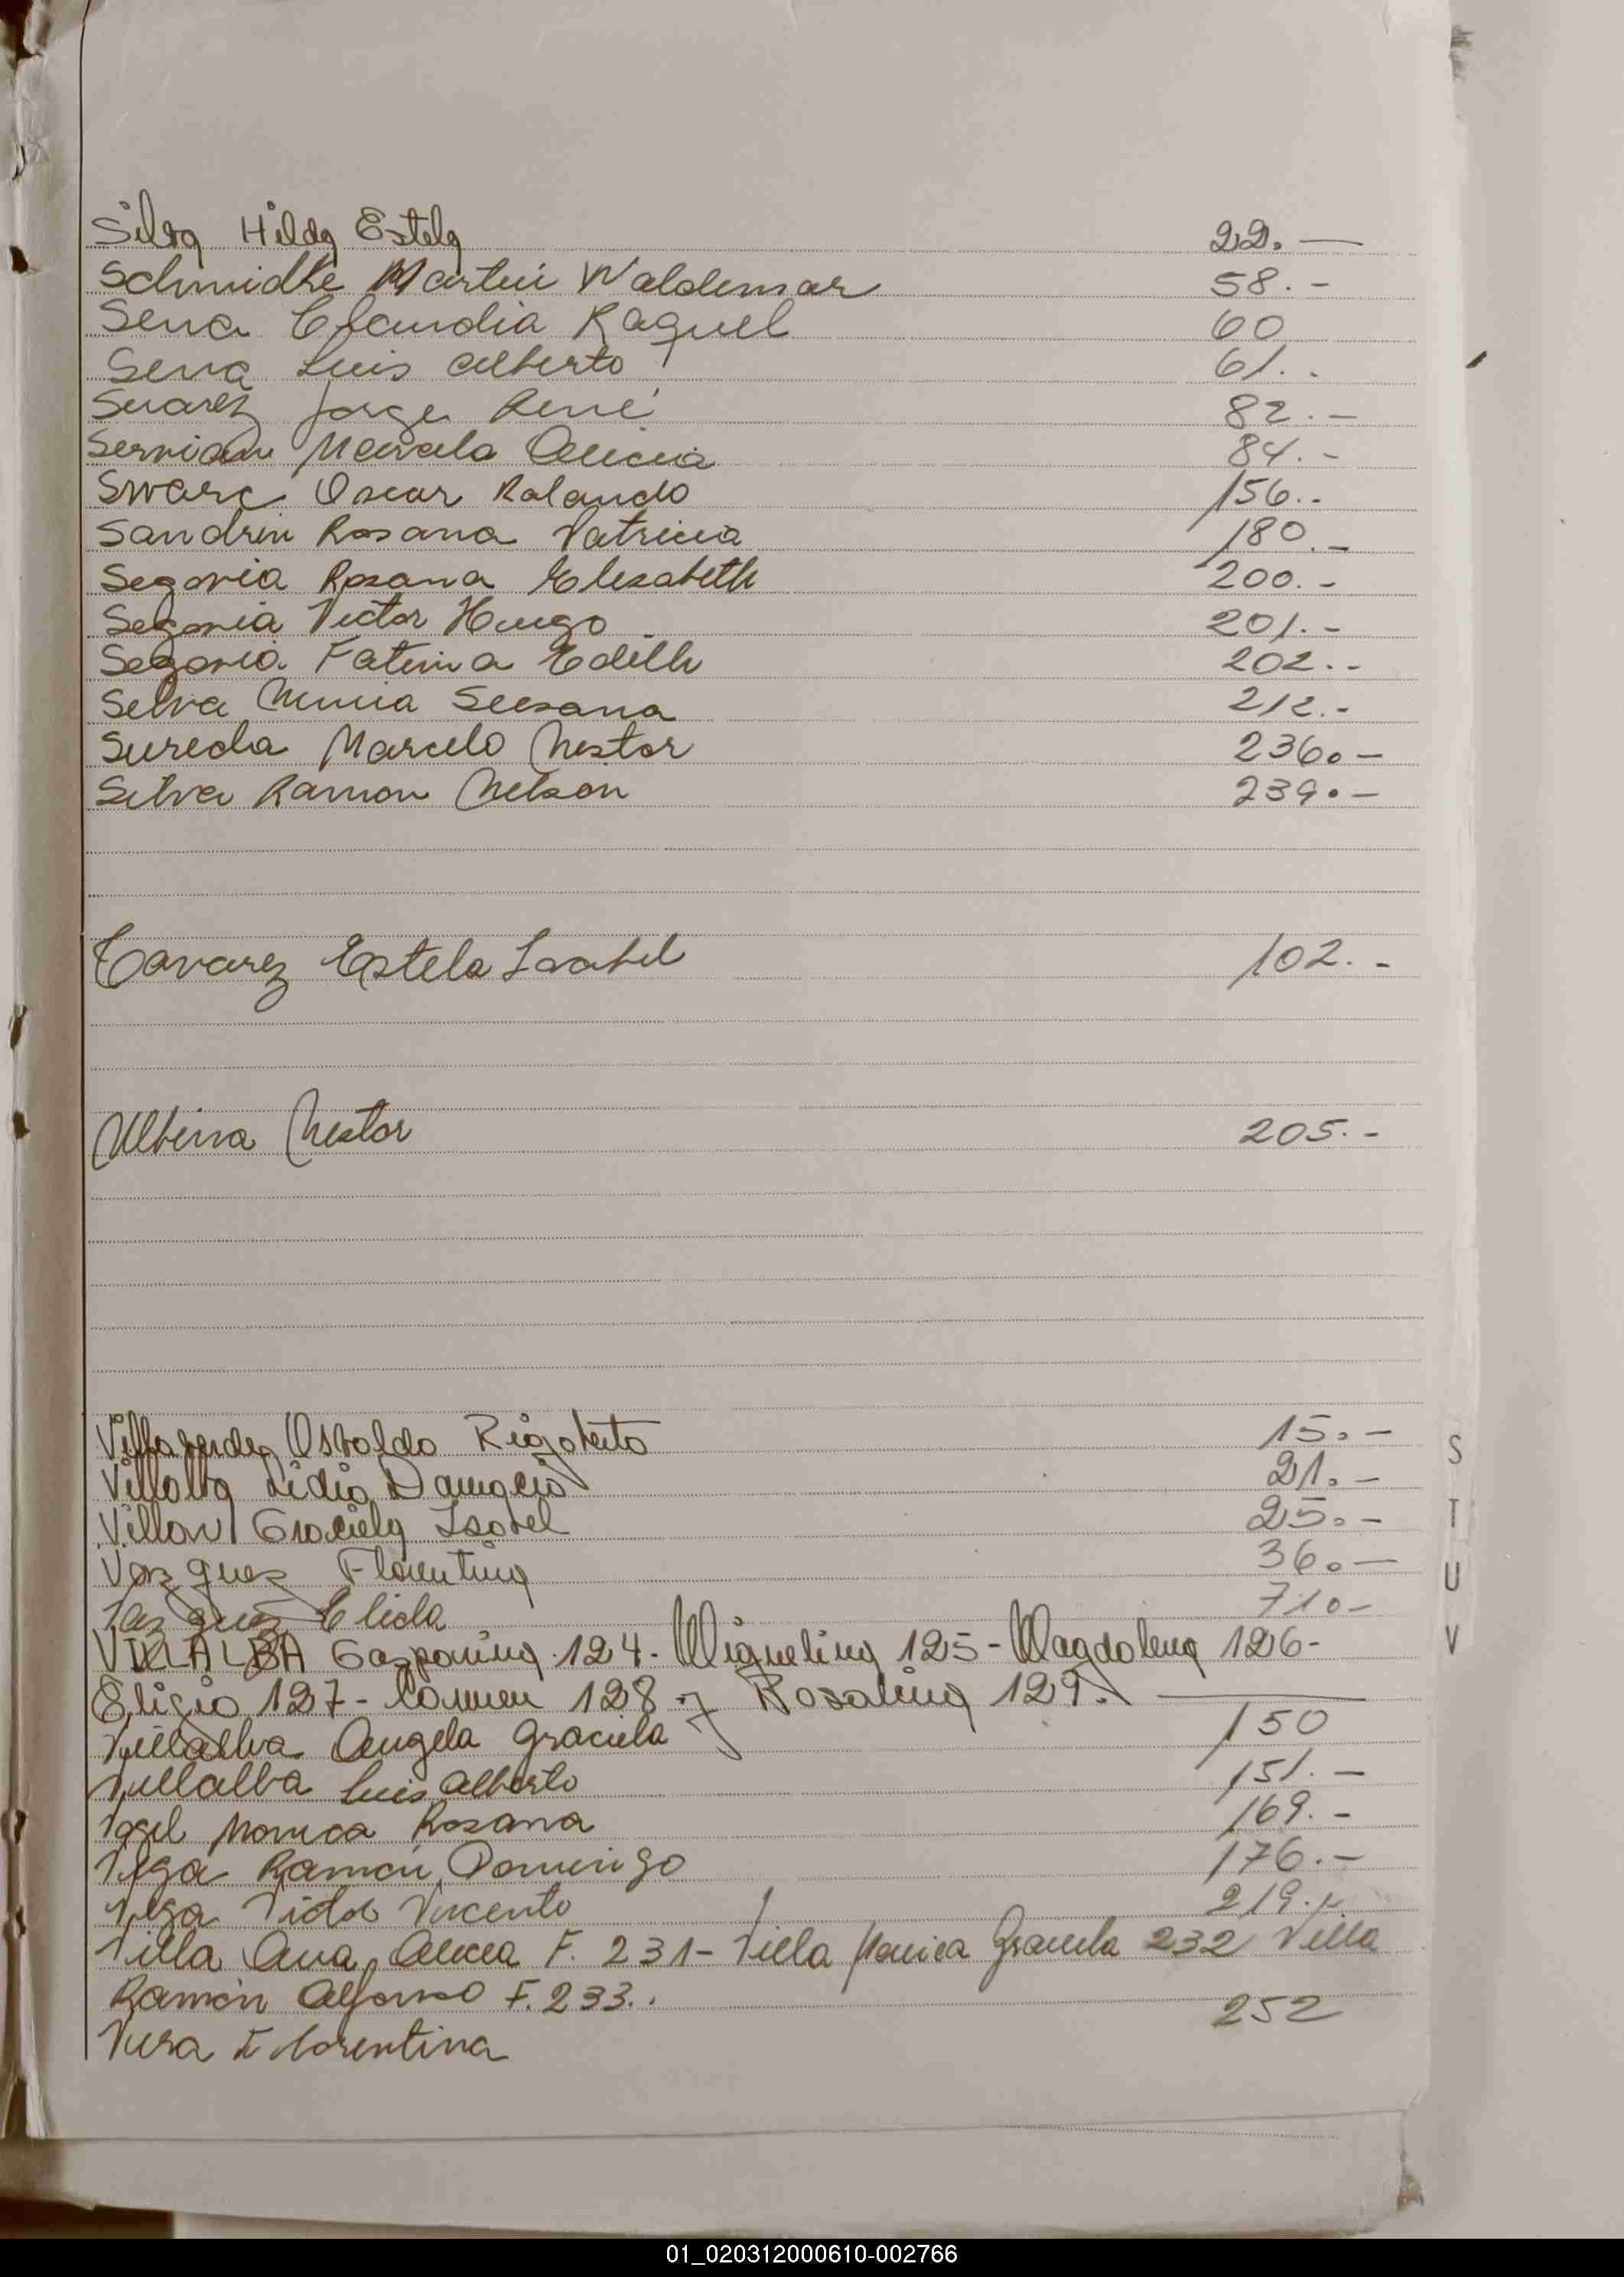 Silva Hilda Estela 22.—
Schmidke Martin Waldemar 58.-
Sena Claudia Raquel 60
Sena Luis Alberto 61..
Suarez Jorge René 82.—
Servian Marcela Alicia 84.-
Swarc Oscar Rolando 156..
Sandrin Rosana Patricia 180.-
Segovia Rosana Elisabeth 200.-
Segovia Victor Hugo 201.-
Segovia Fatima Edith 202..
Selva Nimia Susana 212.-
Sureda Marcelo Nestor 236.-
Silva Ramon Nelson 239.-
Tavarez Estela Isabel 102.-
Albina Nestor 205.-
Villaverde Osvaldo Rigoberto 15.-
Villalba Lidio Damacio 21.-
Villan Graciela Isabel 25.-
Vazquez Florentina 36.—
Vazquez Elida 71.-
VILLALBA Gasparina 124.- Miguelina 125 - Magdalena 126-
Eligio 127 - Carmen 128 - y Rosalina 129.
Villalba Angela Graciela 150
Villalba Luis Alberto 151.-
Vogel Monica Rosana 169.-
Vega Ramon Domingo 176.-
Vega Victor Vicente 219.-
Villa Ana Alicia F. 231- Villa Monica Graciela 232 Villa
Ramón Alfonso F. 233..
Vera Florentina 252
S
T
U
V
01_020312000610-002766